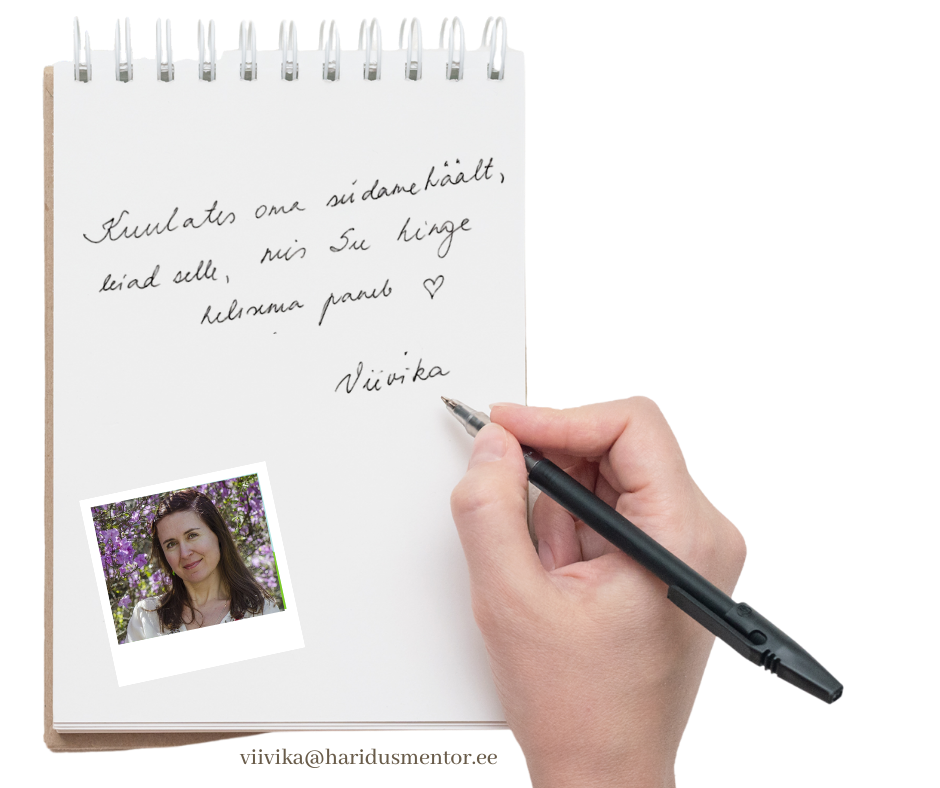 Kuulates oma südamehäält,
leiad selle, mis Su hinge
helisema paneb ♡
Viivika
viivika@haridusmentor.ee